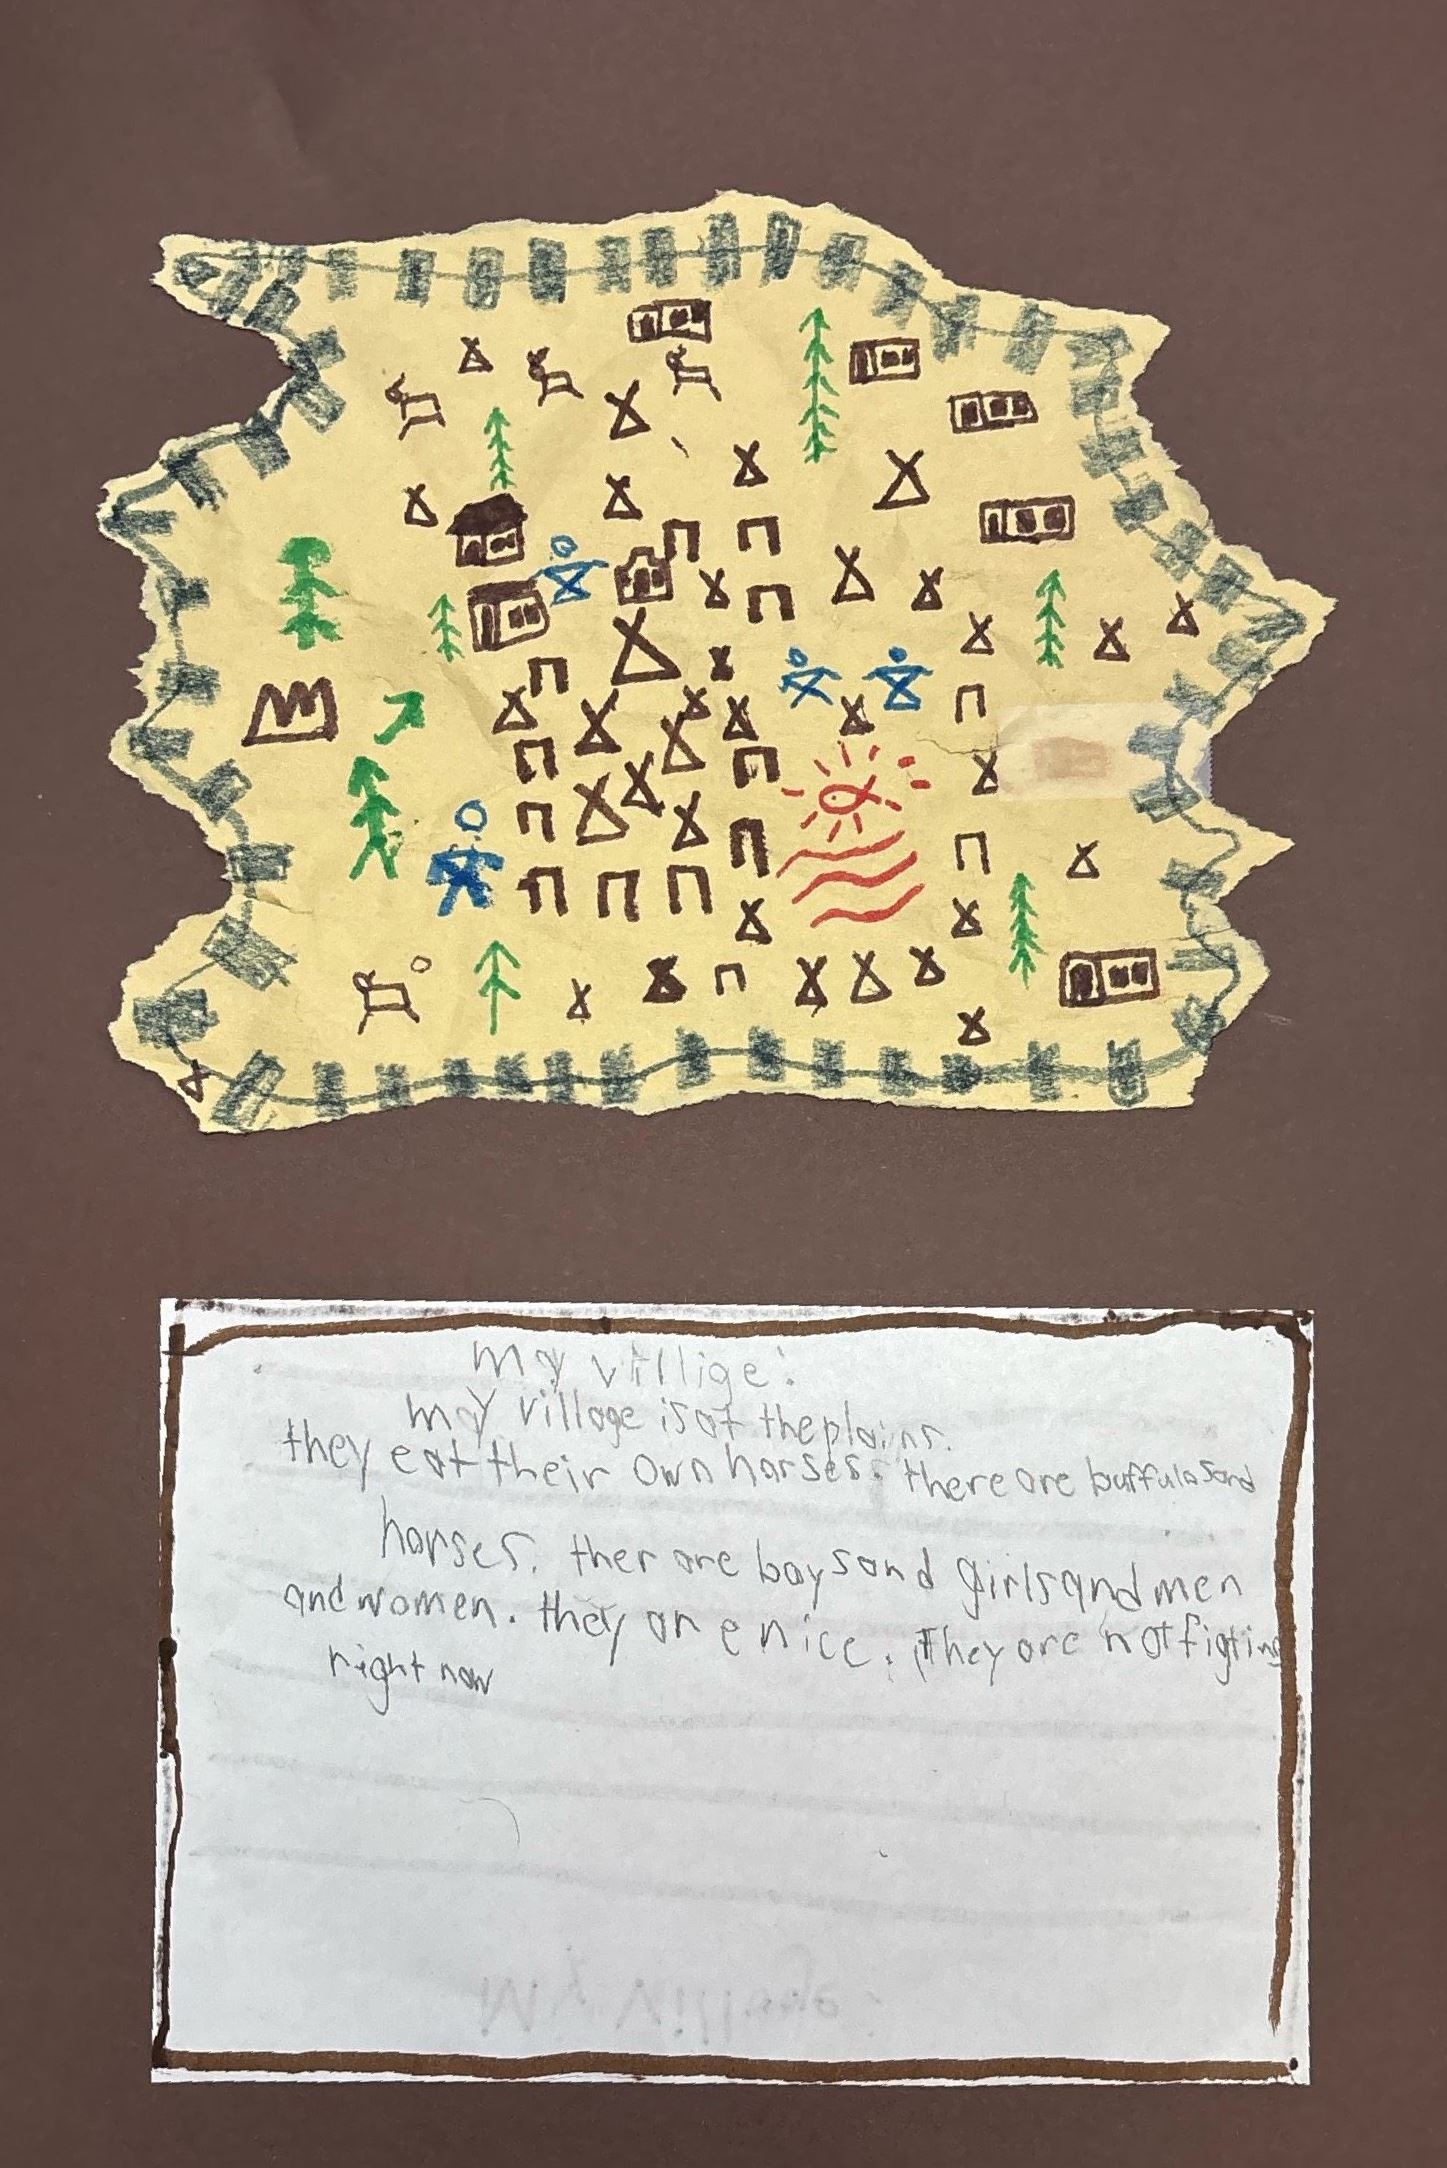 my villige:
my village is at the plains.
they eat their own horses. there are buffulos and
horses. ther are boys and girls and men
and women. they are nice. They are not figting
right now
My Village